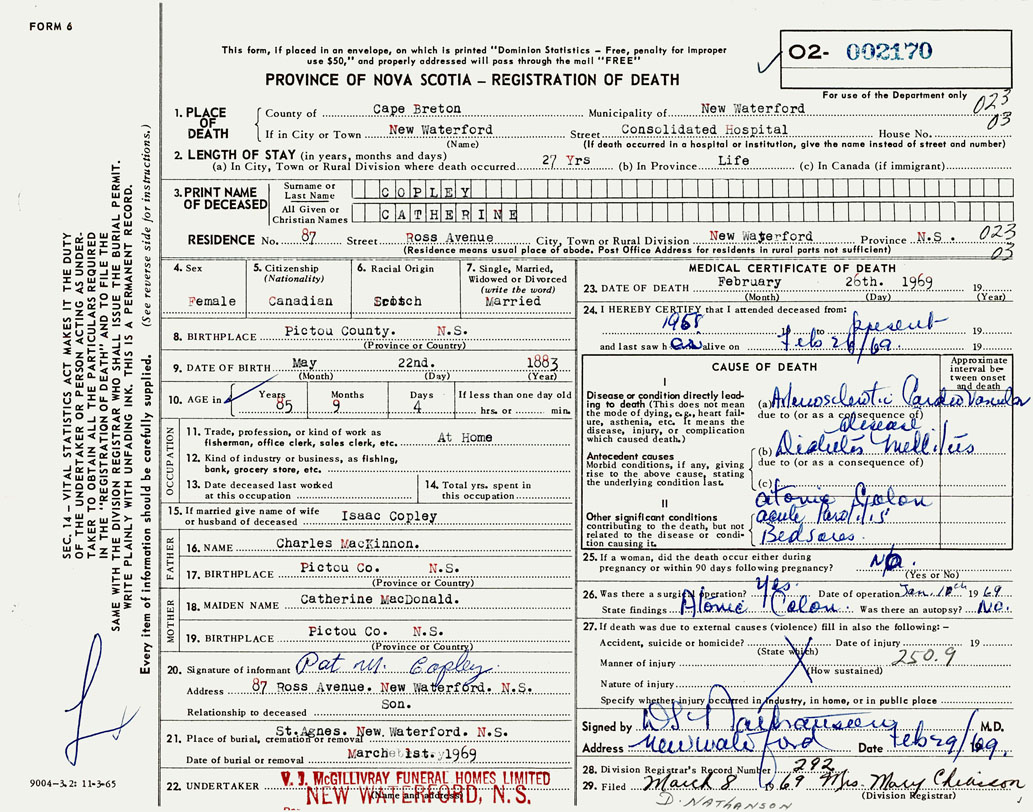 FORM 6
This form, if placed in an envelope, on which is printed "Dominion Statistics – Free, penalty for improper
use $50," and properly addressed will pass through the mail "FREE"
PROVINCE OF NOVA SCOTIA – REGISTRATION OF DEATH
02- 002170
For use of the Department only
023
03
1. PLACE OF DEATH
County of Cape Breton Municipality of New Waterford
If in City or Town New Waterford Street Consolidated Hospital House No.
(Name) (If death occurred in a hospital or institution, give the name instead of street and number)
2. LENGTH OF STAY (in years, months and days)
(a) In City, Town or Rural Division where death occurred 27 Yrs (b) In Province Life (c) In Canada (if immigrant)
3. PRINT NAME OF DECEASED
Surname or Last Name COPLEY
All Given or Christian Names CATHERINE
RESIDENCE No. 87 Street Ross Avenue City, Town or Rural Division New Waterford Province N.S. 023
(Residence means usual place of abode. Post Office Address for residents in rural parts not sufficient) 03
4. Sex
Female
5. Citizenship
(Nationality)
Canadian
6. Racial Origin
Scotch
7. Single, Married,
Widowed or Divorced
(write the word)
Married
8. BIRTHPLACE Pictou County. N.S.
(Province or Country)
9. DATE OF BIRTH May 22nd. 1883
(Month) (Day) (Year)
10. AGE in Years Months Days If less than one day old
85 9 4 hrs. or min.
OCCUPATION
11. Trade, profession, or kind of work as
fisherman, office clerk, sales clerk, etc. At Home
12. Kind of industry or business, as fishing,
bank, grocery store, etc.
13. Date deceased last worked
at this occupation
14. Total yrs. spent in
this occupation
15. If married give name of wife
or husband of deceased Isaac Copley
FATHER
16. NAME Charles MacKinnon.
17. BIRTHPLACE Pictou Co. N.S.
(Province or Country)
MOTHER
18. MAIDEN NAME Catherine MacDonald.
19. BIRTHPLACE Pictou Co. N.S.
(Province or Country)
20. Signature of informant Pat M. Copley
Address 87 Ross Avenue. New Waterford. N.S.
Relationship to deceased Son.
21. Place of burial, cremation or removal St.Agnes. New Waterford. N.S.
Date of burial or removal March 1st. 1969
22. UNDERTAKER V. J. McGILLIVRAY FUNERAL HOMES LIMITED
(Name and address)
NEW WATERFORD, N.S.
MEDICAL CERTIFICATE OF DEATH
23. DATE OF DEATH February 26th. 1969 19
(Month) (Day) (Year)
24. I HEREBY CERTIFY that I attended deceased from:
1968 to present 19
and last saw her alive on Feb 26/69 19
CAUSE OF DEATH
Approximate
interval be-
tween onset
and death
I
Disease or condition directly lead-
ing to death (This does not mean
the mode of dying, e.g., heart fail-
ure, asthenia, etc. It means the
disease, injury, or complication
which caused death.)
(a) Arteriosclerotic Cardiovascular
due to (or as a consequence of)
disease
(b) Diabetes Mellitus
due to (or as a consequence of)
Antecedent causes
Morbid conditions, if any, giving
rise to the above cause, stating
the underlying condition last.
(c)
II
Other significant conditions
contributing to the death, but not
related to the disease or condi-
tion causing it.
atonic Colon
acute Parotitis
Bedsores
25. If a woman, did the death occur either during
pregnancy or within 90 days following pregnancy? No
(Yes or No)
26. Was there a surgical operation? Yes. Date of operation Jan. 10th 1969
State findings Atonic Colon. Was there an autopsy? No.
27. If death was due to external causes (violence) fill in also the following:–
Accident, suicide or homicide? Date of injury 19
(State which)
Manner of injury 250.9
(How sustained)
Nature of injury
Specify whether injury occurred in industry, in home, or in public place
Signed by M.D.
Address New Waterford Date
28. Division Registrar's Record Number 292
29. Filed March 8 1969 Mrs. Mary
(Division Registrar)
D. NATHANSON
SEC. 14 – VITAL STATISTICS ACT MAKES IT THE DUTY
OF THE UNDERTAKER OR PERSON ACTING AS UNDER-
TAKER TO OBTAIN ALL THE PARTICULARS REQUIRED
IN THE "REGISTRATION OF DEATH" AND TO FILE THE
SAME WITH THE DIVISION REGISTRAR WHO SHALL ISSUE THE BURIAL PERMIT.
WRITE PLAINLY WITH UNFADING INK. THIS IS A PERMANENT RECORD.
Every item of information should be carefully supplied. (See reverse side for instructions.)
9004–3.2: 11-3-65